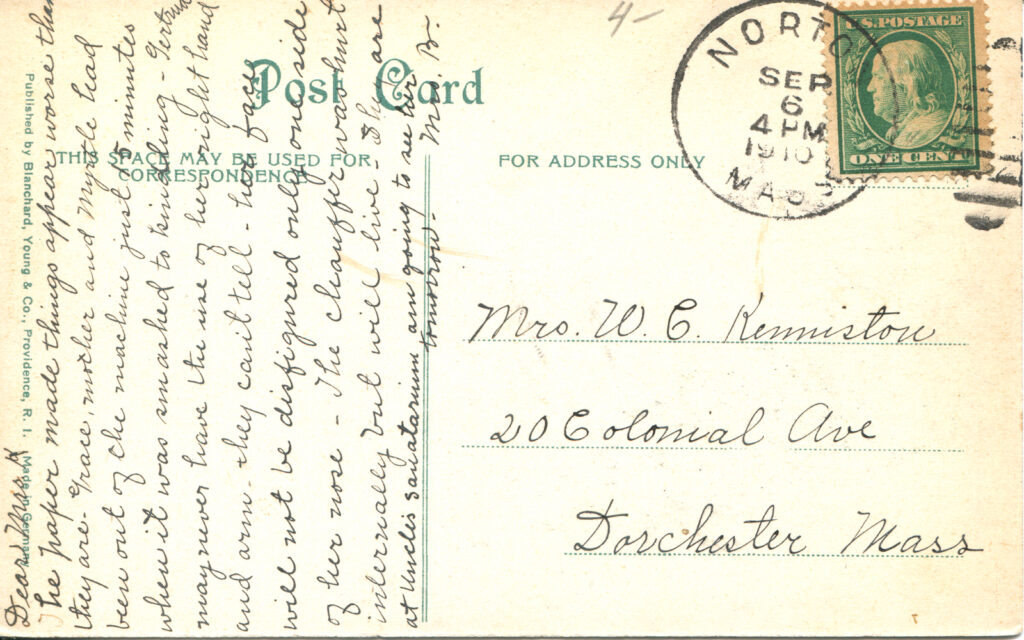 4-
NORTO
SEP
6
4 PM
1910
MASS
U.S. POSTAGE
ONE CENT
Post Card
THIS SPACE MAY BE USED FOR
CORRESPONDENCE
FOR ADDRESS ONLY
Published by Blanchard, Young & Co., Providence, R. I. Made in Germany
Dear Mrs K
The paper made things appear worse than
they are. Grace, mother and Myrtle had
been out of the machine just 5 minutes
when it was smashed to kindling - Gertrude
may never have the use of her right hand
and arm - they can't tell - her face
will not be disfigured only one side
of her nose - The chauffer was hurt
internally but will live - They are
at Uncles sanatarium am going to see her
tomorrow. M. B.
Mrs. W. C. Kenniston
20 Colonial Ave
Dorchester Mass